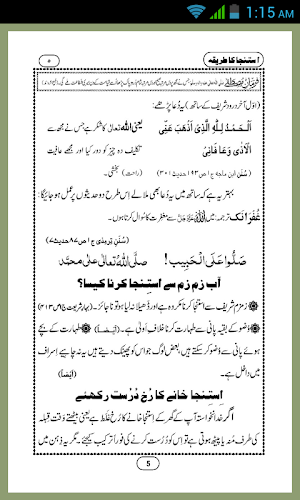 1:15 AM
اِستنجا کا طریقہ
۵
(اوّل آخر درود شریف کے ساتھ) یہ دُعا پڑھئے:
اَلْحَمْدُ لِلّٰهِ الَّذِیْ اَذْهَبَ عَنِّی
الْاَذٰی وَعَافَانِیْ
یعنی اللہ تعالیٰ کا شکر ہے جس نے مجھ سے
تکلیف دہ چیز کو دور کیا اور مجھے عافیت
(راحت) بخشی۔
(سُنَنِ ابن ماجہ ج۱ ص۱۹۳ حدیث ۳۰۱)
بہتر یہ ہے کہ ساتھ میں یہ دُعا بھی ملا لے اِس طرح دو حدیثوں پر عمل ہو جائیگا:
غُفْرَانَكَ ترجمہ: میں اللہ عزوجل سے مغفرت کا سُوال کرتا ہوں۔
(سُنَنِ تِرمِذی ج۱ ص۸۷ حدیث۷)
صَلُّوا عَلَی الْحَبِیب! صلَّی اللہُ تعالٰی علٰی محمَّد
آبِ زم زم سے اِستنجا کرنا کیسا؟
زمزم شریف سے استنجا کرنا مکروہ ہے اور ڈھیلا نہ لیا ہو تو ناجائز۔ (بہارِ شریعت
وضو کے بقیہ پانی سے طہارت کرنا خلافِ اَولٰی ہے۔ (اَیضاً) طہارت کے بچے
ہوئے پانی سے وضو کر سکتے ہیں، بعض لوگ جو اس کو پھینک دیتے ہیں یہ نہ چاہیے اِسراف
میں داخل ہے۔ (اَیضاً)
اِستنجا خانے کا رُخ دُرُست رکھئے
اگر خدانخواستہ آپ کے گھر کے استنجا خانے کا رخ غلط ہے یعنی بیٹھتے وقت قبلہ
کی طرف مُنہ یا پیٹھ ہوتی ہے تو اس کو دُرُست کرنے کی فوراً ترکیب کیجئے۔ مگر یہ ذِہن میں
5